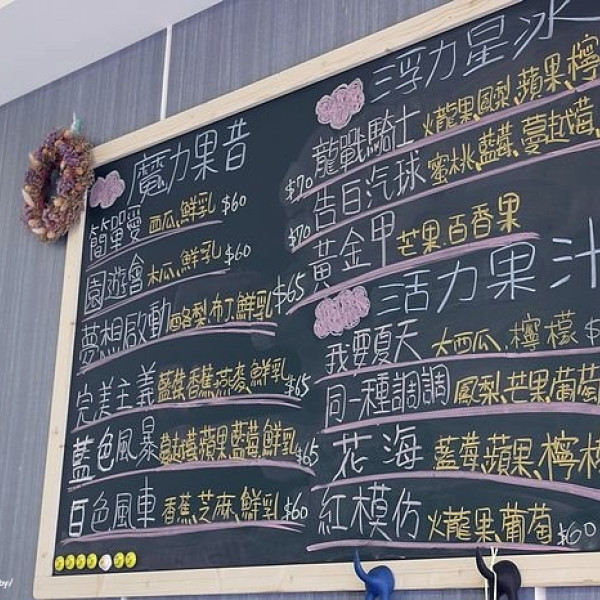 魔力果昔
簡單愛 西瓜、鮮乳 $60
園遊會 木瓜、鮮乳 $60
夢想啟動 酪梨、布丁、鮮乳 $65
完美主義 藍莓、香蕉、燕麥、鮮乳 $65
藍色風暴 蔓越莓、蘋果、藍莓、鮮乳 $65
白色風車 香蕉、芝麻、鮮乳 $60
浮力星冰
龍戰騎士 火龍果、鳳梨、蘋果、檸
$70
告白汽球 蜜桃、藍莓、蔓越莓、
$70
黃金甲 芒果.百香果
活力果汁
我要夏天 大西瓜、檸檬 $
同一種調調 鳳梨、芒果、葡萄
花海 藍莓、蘋果、檸檬
紅模仿 火龍果、葡萄 $60
by/